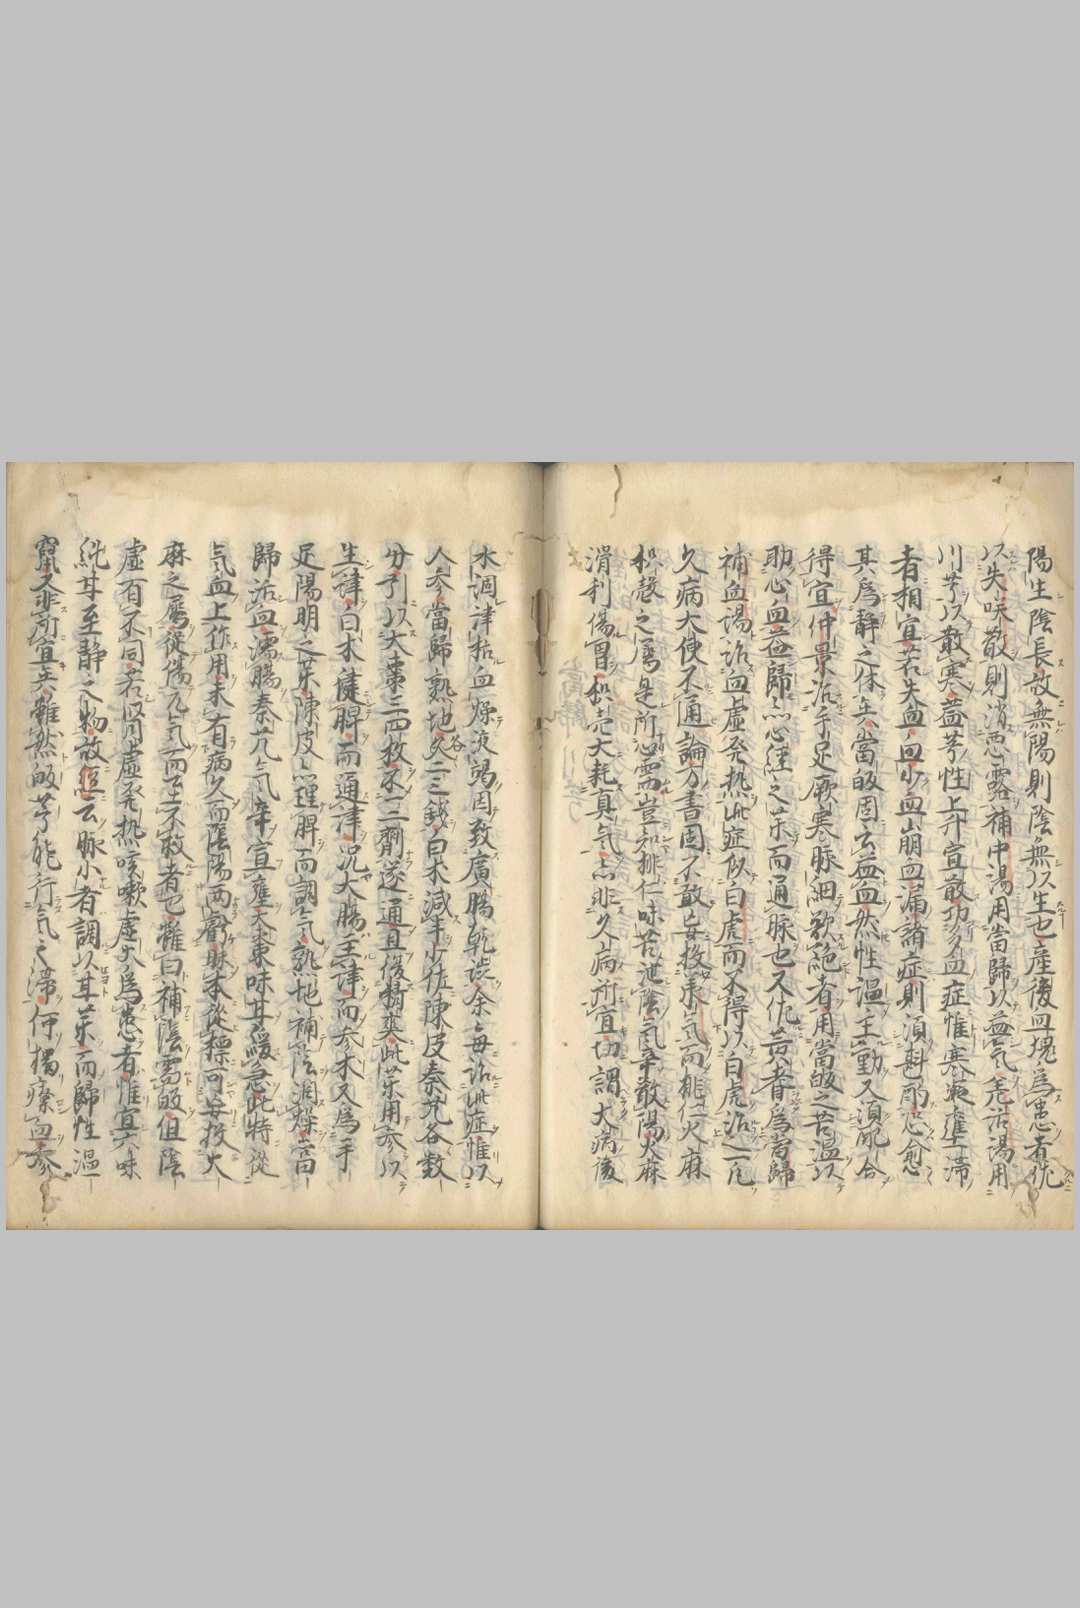 陽生陰長故無陽則陰無以生也産後血塊為患者佐
以失咲散則消悪露補中湯用當歸以益气羌活湯用
川芎以散寒蓋芎性上升宜散功多血症惟寒凝壅滞
者相宜若失血血少血崩血漏諸症則須斟酌心愈
其為静之体矣當皈固云益血然性温主動又須配合
得宜仲景治手足厥寒脉細欲絶者用當皈之苦温以
助心血益歸亦心經之薬而通脉也又佐黄耆為當歸
補血湯治血虚発热此症似白虎而不得以白虎治之凡
久病大便不通論方書固不敢妄投承气而桃仁火麻
枳殻之属是所必需豈知桃仁味苦泄陰气辛散陽火麻
滑利傷胃枳壳大耗真气亦非久病所宜切謂大病後
水凋津枯血燥液竭因致廣腸乾澁余毎治此症惟以
人参當歸熟地各二三錢白朮減半少佐陳皮秦艽各数
分引以大棗三四枚不一二劑遂通且後精爽此薬用参以
生津白朮健脾而通津况大腸主津而参朮又為手
足陽明之薬陳皮亦理脾而調气熟地補陰潤燥當
歸活血濡腸秦艽气辛宣壅大棗味甘緩急此特従
气血上作用未有病久而陰陽両虧脉本従標可妄投大
麻之属従傷元气而至不救者也雖曰補陰需皈但陰
虚有不同若陰虚発热咳嗽虚火為患者惟宜六味
純甘至静之物故經云脉小者調以甘薬而歸性温
竄又非所宜矣雖然皈芎能行气之滞何獨療血参